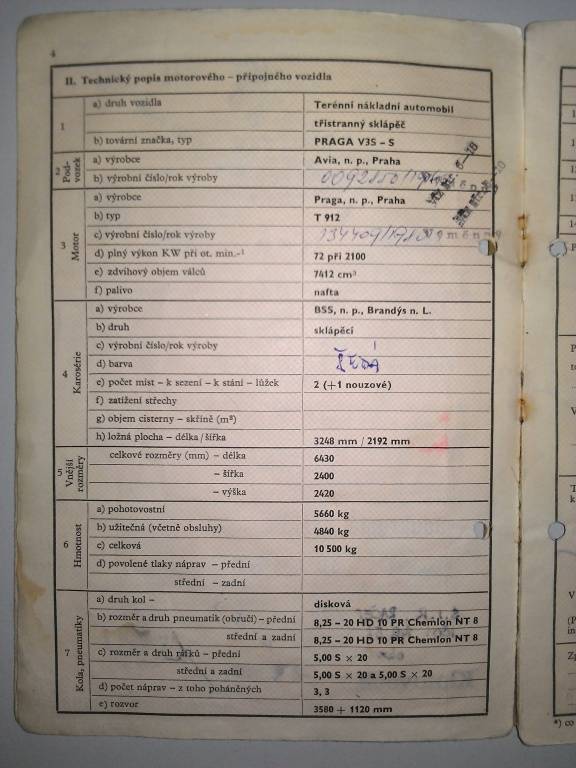 4
II. Technický popis motorového – přípojného vozidla
1
a) druh vozidla Terénní nákladní automobil
třístranný sklápěč
b) tovární značka, typ PRAGA V3S – S
2 Podvozek
a) výrobce Avia, n. p., Praha
b) výrobní číslo/rok výroby
3 Motor
a) výrobce Praga, n. p., Praha
b) typ T 912
c) výrobní číslo/rok výroby
d) plný výkon KW při ot. min.-¹ 72 při 2100
e) zdvihový objem válců 7412 cm³
f) palivo nafta
4 Karosérie
a) výrobce BSS, n. p., Brandýs n. L.
b) druh sklápěcí
c) výrobní číslo/rok výroby
d) barva ŠEDÁ
e) počet míst – k sezení – k stání – lůžek 2 (+1 nouzové)
f) zatížení střechy
g) objem cisterny – skříně (m³)
h) ložná plocha – délka/šířka 3248 mm / 2192 mm
5 Vnější rozměry
celkové rozměry (mm) – délka 6430
– šířka 2400
– výška 2420
6 Hmotnost
a) pohotovostní 5660 kg
b) užitečná (včetně obsluhy) 4840 kg
c) celková 10 500 kg
d) povolené tlaky náprav – přední
střední – zadní
7 Kola, pneumatiky
a) druh kol – disková
b) rozměr a druh pneumatik (obručí) – přední 8,25 – 20 HD 10 PR Chemlon NT 8
střední a zadní 8,25 – 20 HD 10 PR Chemlon NT 8
c) rozměr a druh ráfků – přední 5,00 S × 20
střední a zadní 5,00 S × 20 a 5,00 S × 20
d) počet náprav – z toho poháněných 3, 3
e) rozvor 3580 + 1120 mm
*) co